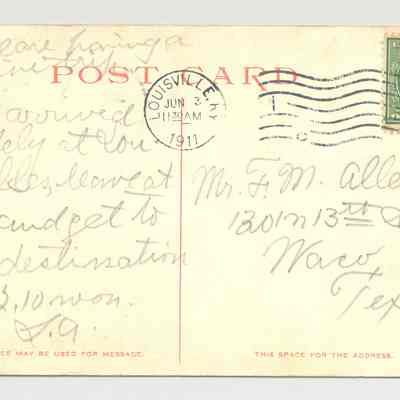 are having a
fine trip
POST CARD
arrived
at Lou
leave at
and get to
destination
2.10 won.
S.A.
LOUISVILLE, KY
JUN 3
1130AM
1911
Mr. F. M. Alle
1301 N 13th S
Waco
Tex
CE MAY BE USED FOR MESSAGE.
THIS SPACE FOR THE ADDRESS.